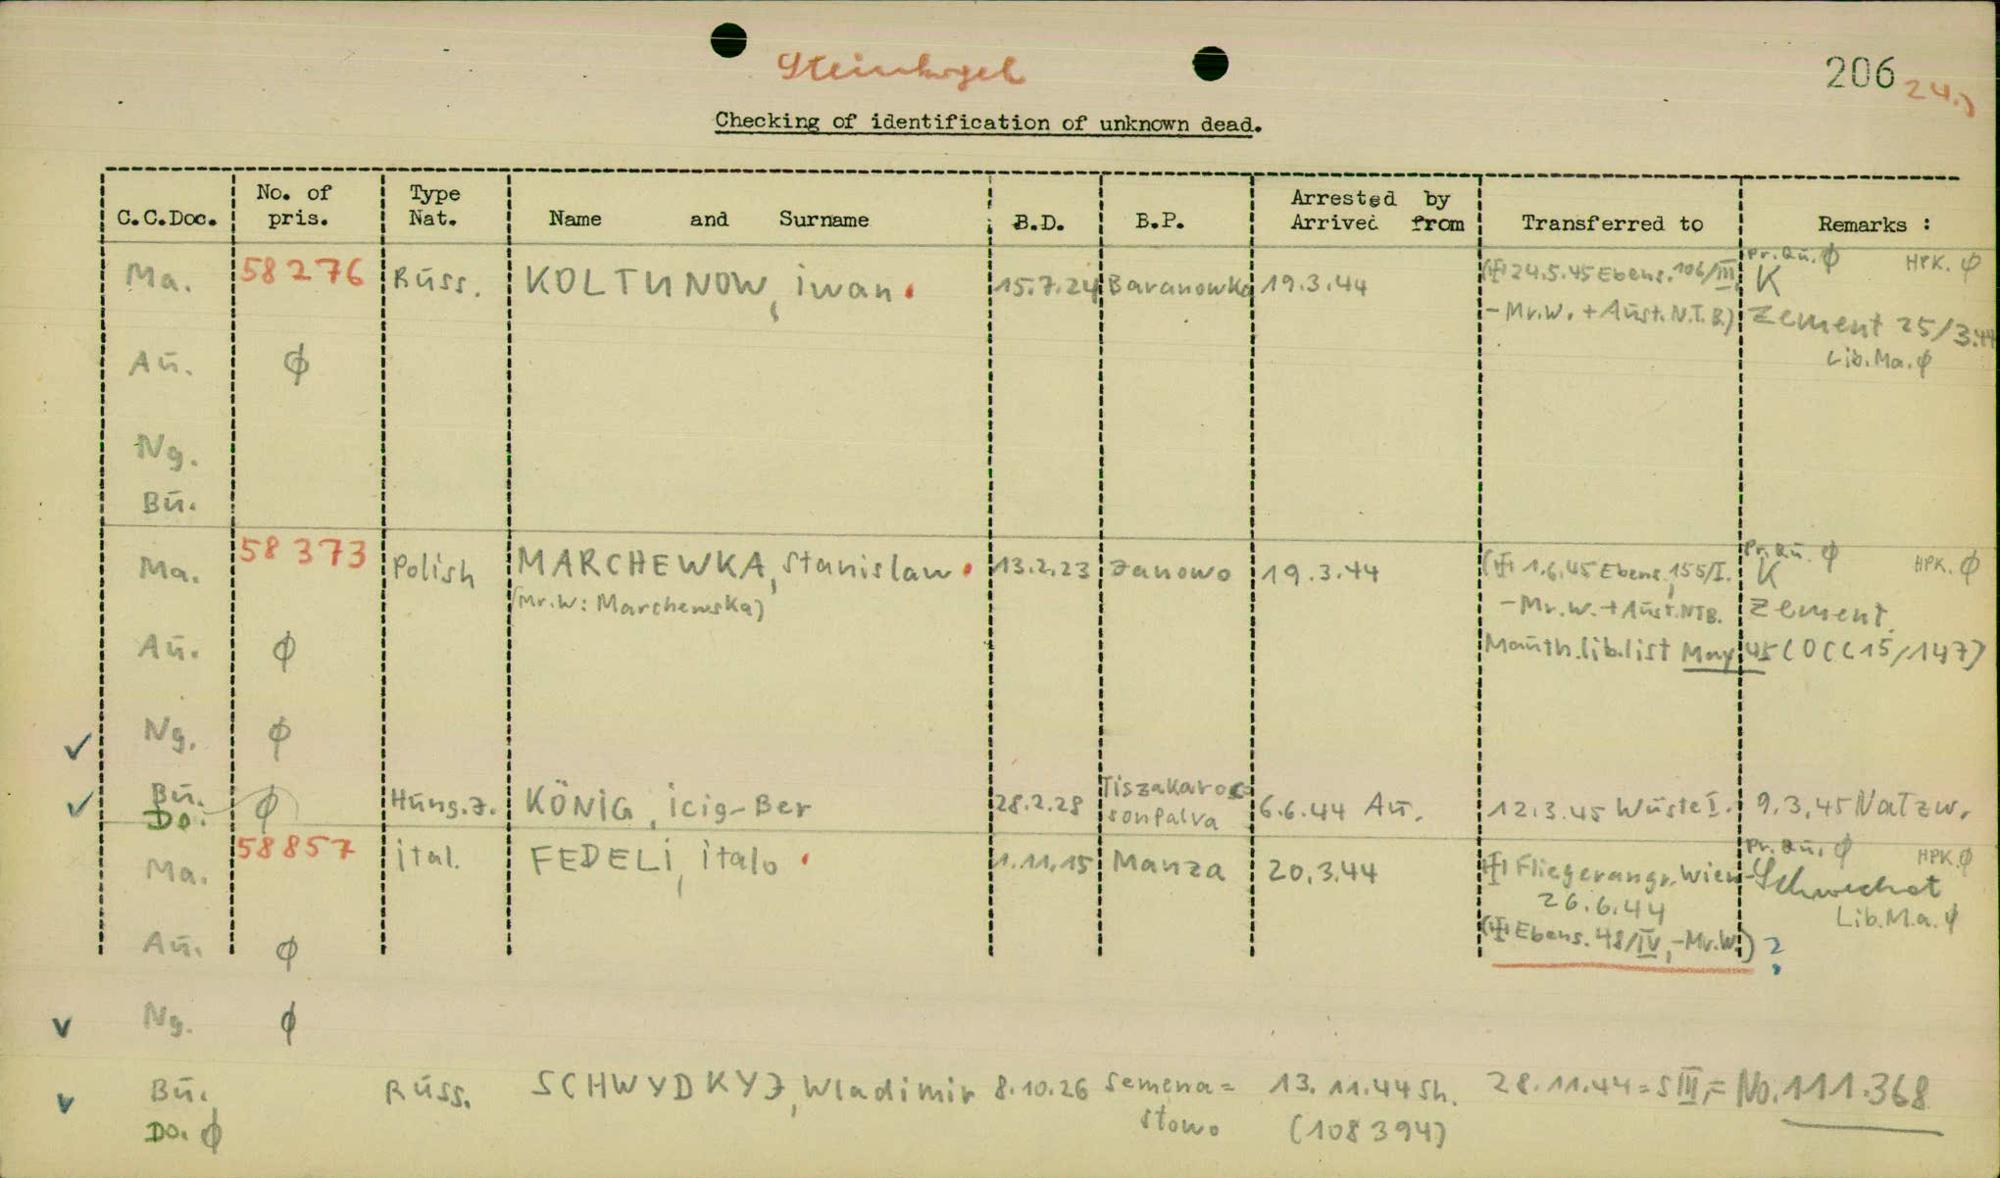 Steinkogel
206 24.)
Checking of identification of unknown dead.
C.C.Doc. No. of pris. Type Nat. Name and Surname B.D. B.P. Arrested by Arrived from Transferred to Remarks :
Pr.Qū. ϕ HPK. ϕ
Ma. 58276 Rūss. KOLTUNOW, iwan. 15.7.24 Baranowka 19.3.44 (卐 24.5.45 Ebens. 106/III, K
-Mr.W. + Aūst. N.T.B.) Zement 25/3.44
Aū. ϕ Lib.Ma. ϕ
Ng.
Bū.
Pr.Qū. ϕ HPK. ϕ
Ma. 58373 Polish MARCHEWKA, Stanislaw. 13.2.23 Janowo 19.3.44 (1.6.45 Ebens. 155/I. K
(Mr.W: Marchewska) -Mr.W. + Aūst. NTB. Zement.
Aū. ϕ Maūth. lib.list May 45 (OCC 15/147)
Ng. ϕ
Bū. Do. ϕ Hūng.J. KÖNiG, icig-Ber 28.2.28 Tiszakaroc= sonfalva 6.6.44 Aū. 12.3.45 Wūste I. 9.3.45 Natzw.
Pr.Qū. ϕ HPK. ϕ
Ma. 58857 ital. FEDELi, italo. 1.11.15 Manza 20.3.44 Fliegerangr. Wien-Schwechat
26.6.44 Lib.Ma. ϕ
Aū. ϕ (Ebens. 48/IV, -Mr.W.) ?
Ng. ϕ
Bū. Rūss. SCHWYDKYJ, Wladimir 8.10.26 Semena= 13.11.44 Sh. 28.11.44 = S III, = No. 111.368
Do. ϕ stowo (108394)